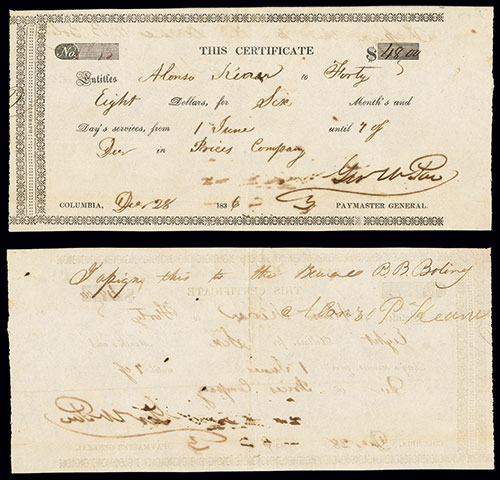 No
THIS CERTIFICATE
$ 48.00
Entitles Alonso Kearn to Forty
Eight Dollars, for Six Month's and
Day's services, from 1 June until 7 of
Dec in Prices Company
Geo W Poe
COLUMBIA, Decr 28 1836 PAYMASTER GENERAL.
TELEGRAPH POWER PRESS
I assign this to the Bearer B.B. Boling
Alonzo P Kearn